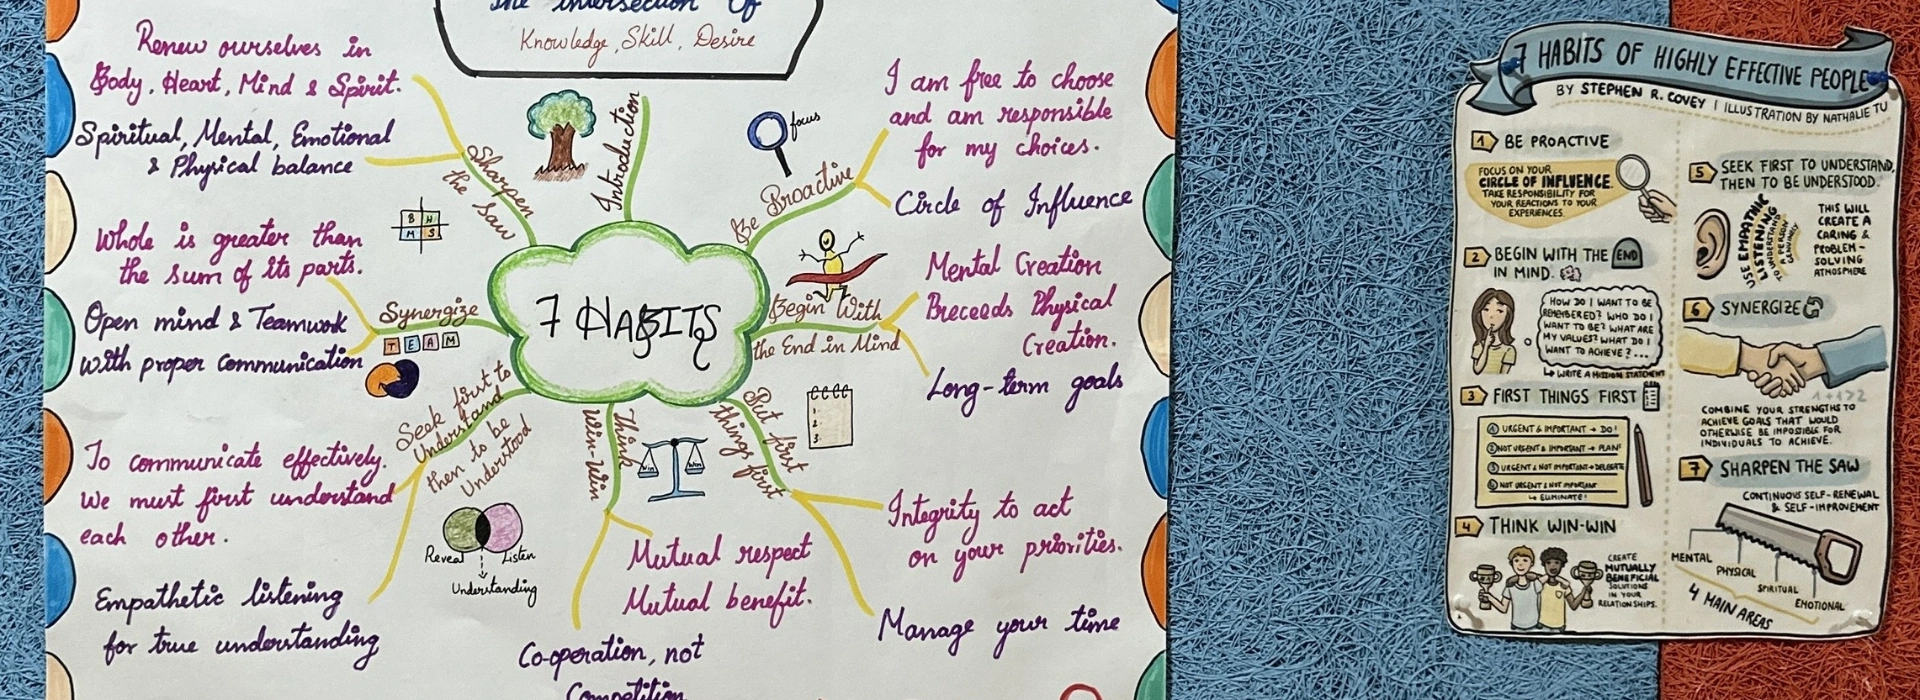 The Intersection Of
Knowledge, Skill, Desire
Renew ourselves in
Body, Heart, Mind & Spirit.
Spiritual, Mental, Emotional
& Physical balance
Sharpen
the Saw
B H
M S
Whole is greater than
the sum of its parts.
Open mind & Teamwork
with proper communication
Synergize
TEAM
To communicate effectively.
we must first understand
each other.
Empathetic listening
for true understanding
Seek first to
Understand
then to be
Understood
Reveal
Listen
Understanding
7 HABITS
Introduction
focus
Be Proactive
I am free to choose
and am responsible
for my choices.
Circle of Influence
Begin With
the End in Mind
Mental Creation
Preceeds Physical
Creation.
Long-term goals
Put first
things first
1.
2.
3.
Integrity to act
on your priorities.
Manage your time
Think
Win-Win
Win
Win
Mutual respect
Mutual benefit.
Co-operation, not
Competition
7 HABITS OF HIGHLY EFFECTIVE PEOPLE
BY STEPHEN R. COVEY | ILLUSTRATION BY NATHALIE TU
1 BE PROACTIVE
FOCUS ON YOUR
CIRCLE OF INFLUENCE.
TAKE RESPONSIBILITY FOR
YOUR REACTIONS TO YOUR
EXPERIENCES.
2 BEGIN WITH THE END
IN MIND.
HOW DO I WANT TO BE
REMEMBERED? WHO DO I
WANT TO BE? WHAT ARE
MY VALUES? WHAT DO I
WANT TO ACHIEVE? ...
↳ WRITE A MISSION STATEMENT
3 FIRST THINGS FIRST
1 URGENT & IMPORTANT → DO!
2 NOT URGENT & IMPORTANT → PLAN!
3 URGENT & NOT IMPORTANT → DELEGATE
4 NOT URGENT & NOT IMPORTANT
↳ ELIMINATE!
4 THINK WIN-WIN
CREATE
MUTUALLY
BENEFICIAL
SOLUTIONS
IN YOUR
RELATIONSHIPS.
5 SEEK FIRST TO UNDERSTAND,
THEN TO BE UNDERSTOOD.
USE EMPATHIC
LISTENING
TO UNDERSTAND
A PERSON
GENUINELY
THIS WILL
CREATE A
CARING &
PROBLEM-
SOLVING
ATMOSPHERE
6 SYNERGIZE
1+1>2
COMBINE YOUR STRENGTHS TO
ACHIEVE GOALS THAT WOULD
OTHERWISE BE IMPOSSIBLE FOR
INDIVIDUALS TO ACHIEVE.
7 SHARPEN THE SAW
CONTINUOUS SELF-RENEWAL
& SELF-IMPROVEMENT
MENTAL
PHYSICAL
SPIRITUAL
EMOTIONAL
4 MAIN AREAS